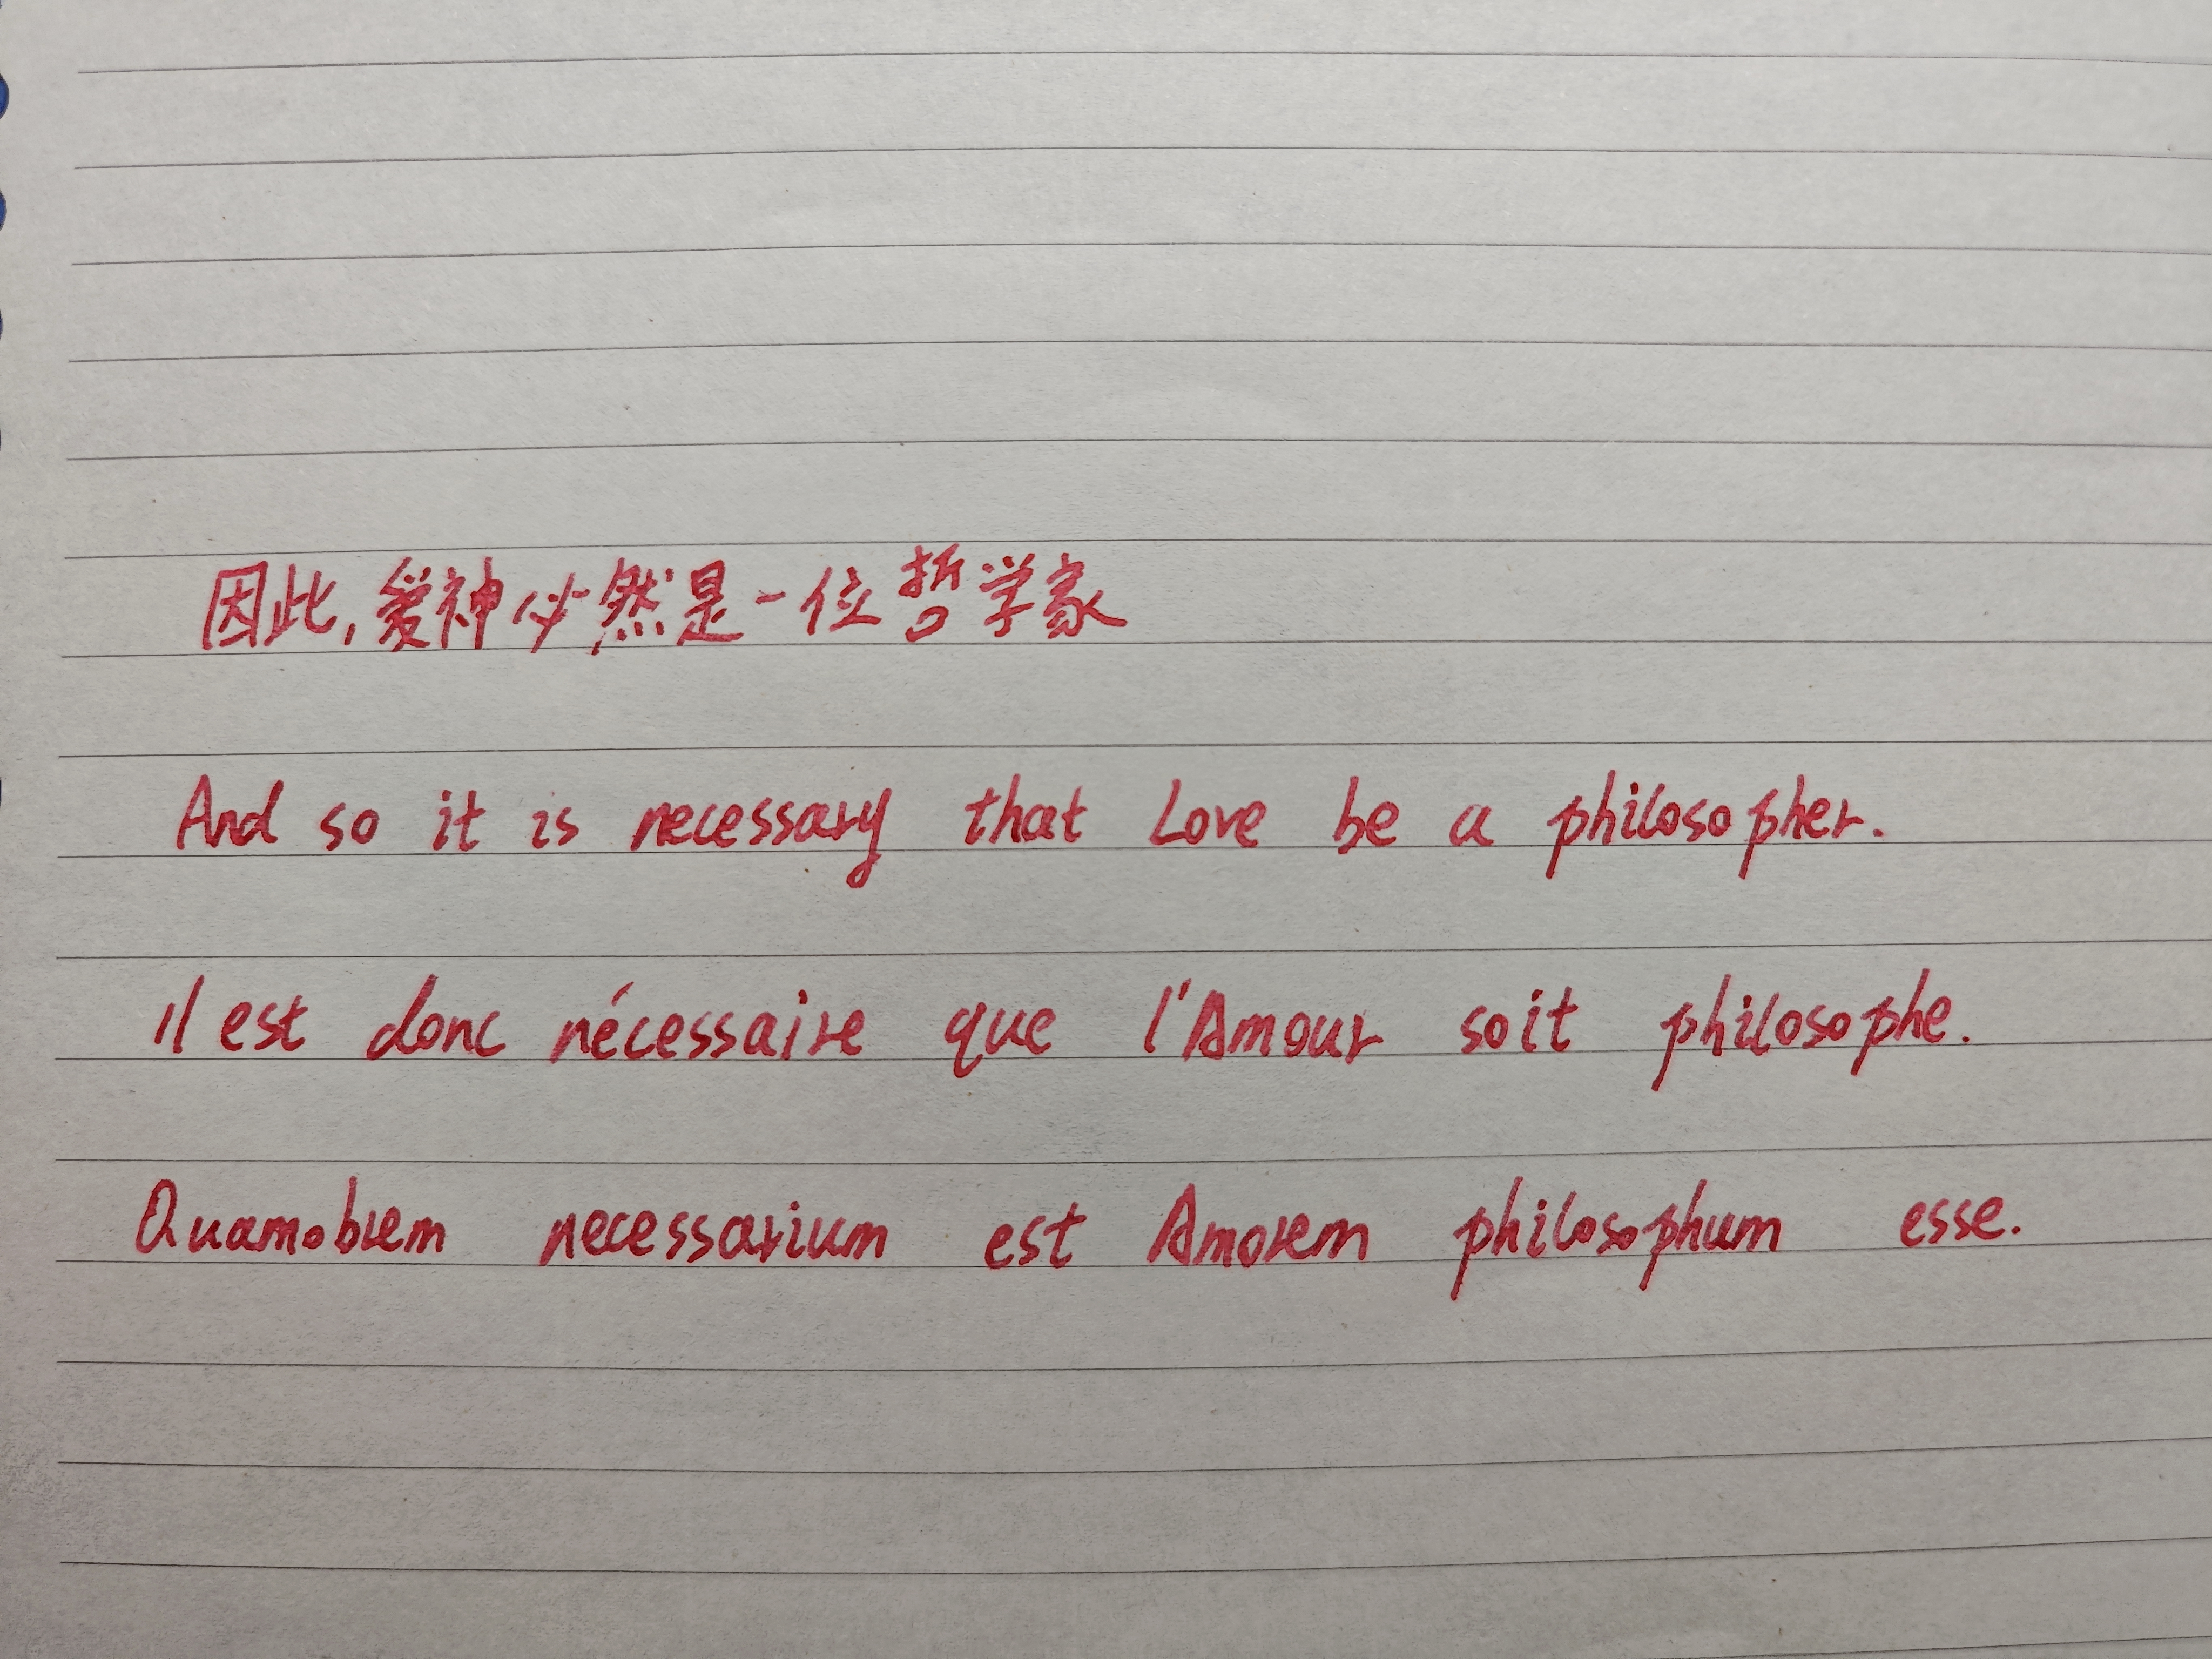 因此,爱神必然是一位哲学家
And so it is necessary that Love be a philosopher.
il est donc nécessaire que l'Amour soit philosophe.
Quamobrem necessarium est Amorem philosophum esse.